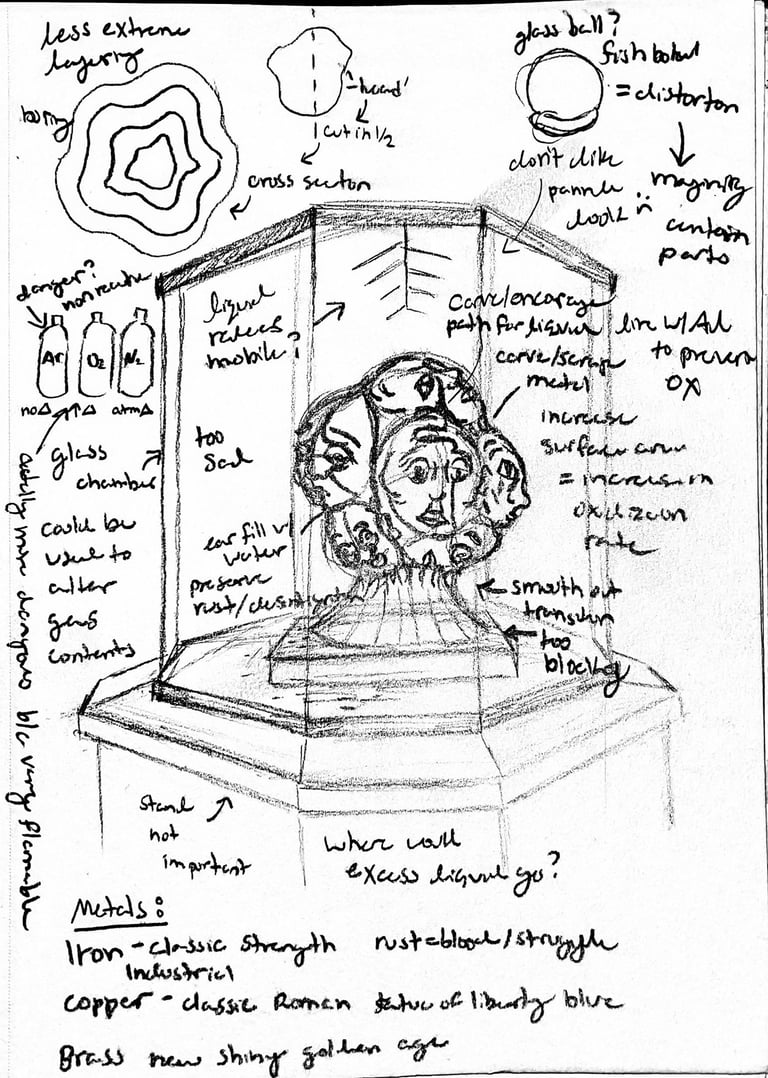 less extreme
layering
boring
"head"
cut in 1/2
cross section
glass ball?
fish bowl
= distorton
don't like
look
magnify
certain
parts
danger?
non reactive
Ar O₂ N₂
no△ ↑△ atm△
glass
chamber
could be
used to
alter
gas
contents
liquid
release
mobile?
too
sad
carve/encourage
path for liquid
line w/
to prevent
ox
carve/scrape
metal
increase
surface area
= increase in
oxidization
rate
ear fill w
water
preserve
smooth out
transition
too
blocky
more dangerous b/c very flamable
stand
not
important
where will
excess liquid go?
Metals:
Iron - classic strength rust = blood/struggle
Industrial
copper - classic Roman statue of liberty blue
Brass new shiny golden age